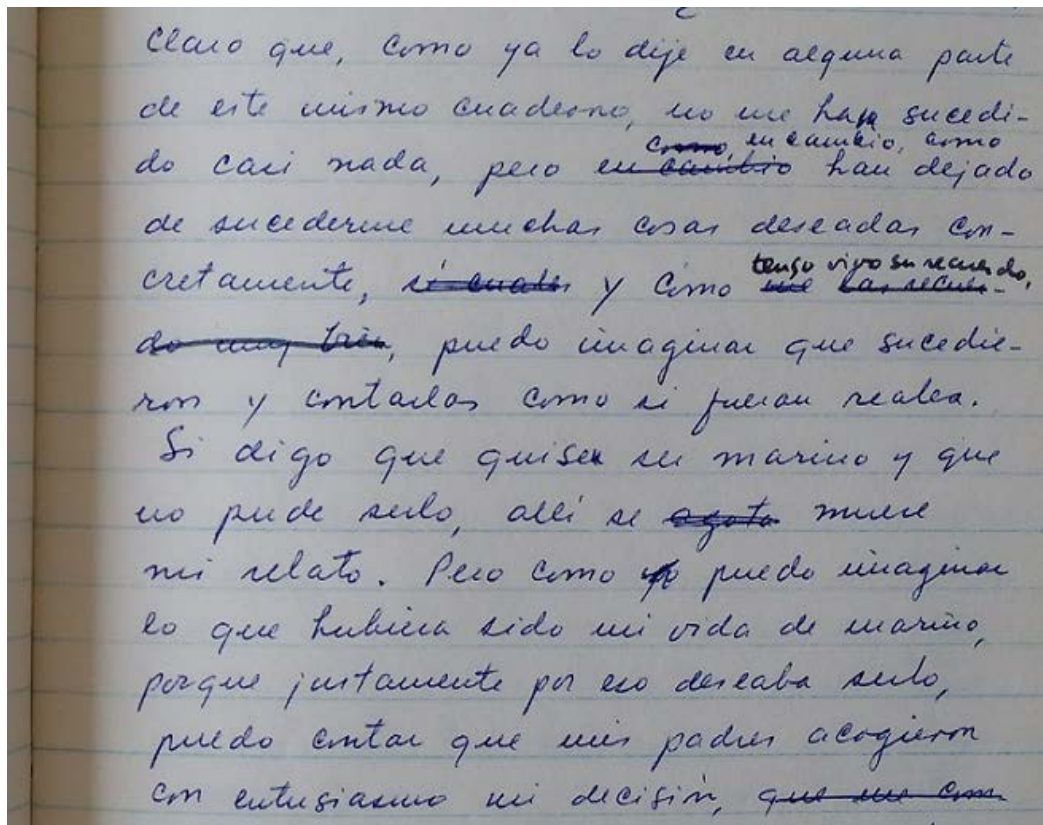 Claro que, como ya lo dije en alguna parte
de este mismo cuaderno, no me haya sucedi-
como, en cambio, como
do casi nada, pero en cambio han dejado
de sucederme muchas cosas deseadas con-
tengo vivo su recuerdo,
cretamente, si cuales y como me las recuer-
do muy bien, puedo imaginar que sucedie-
ron y contarlas como si fueran reales.
Si digo que quise ser marino y que
no pude serlo, allí se agota muere
mi relato. Pero como yo puedo imaginar
lo que hubiera sido mi vida de marino,
porque justamente por eso deseaba serlo,
puedo contar que mis padres acogieron
con entusiasmo mi decisión, que me com